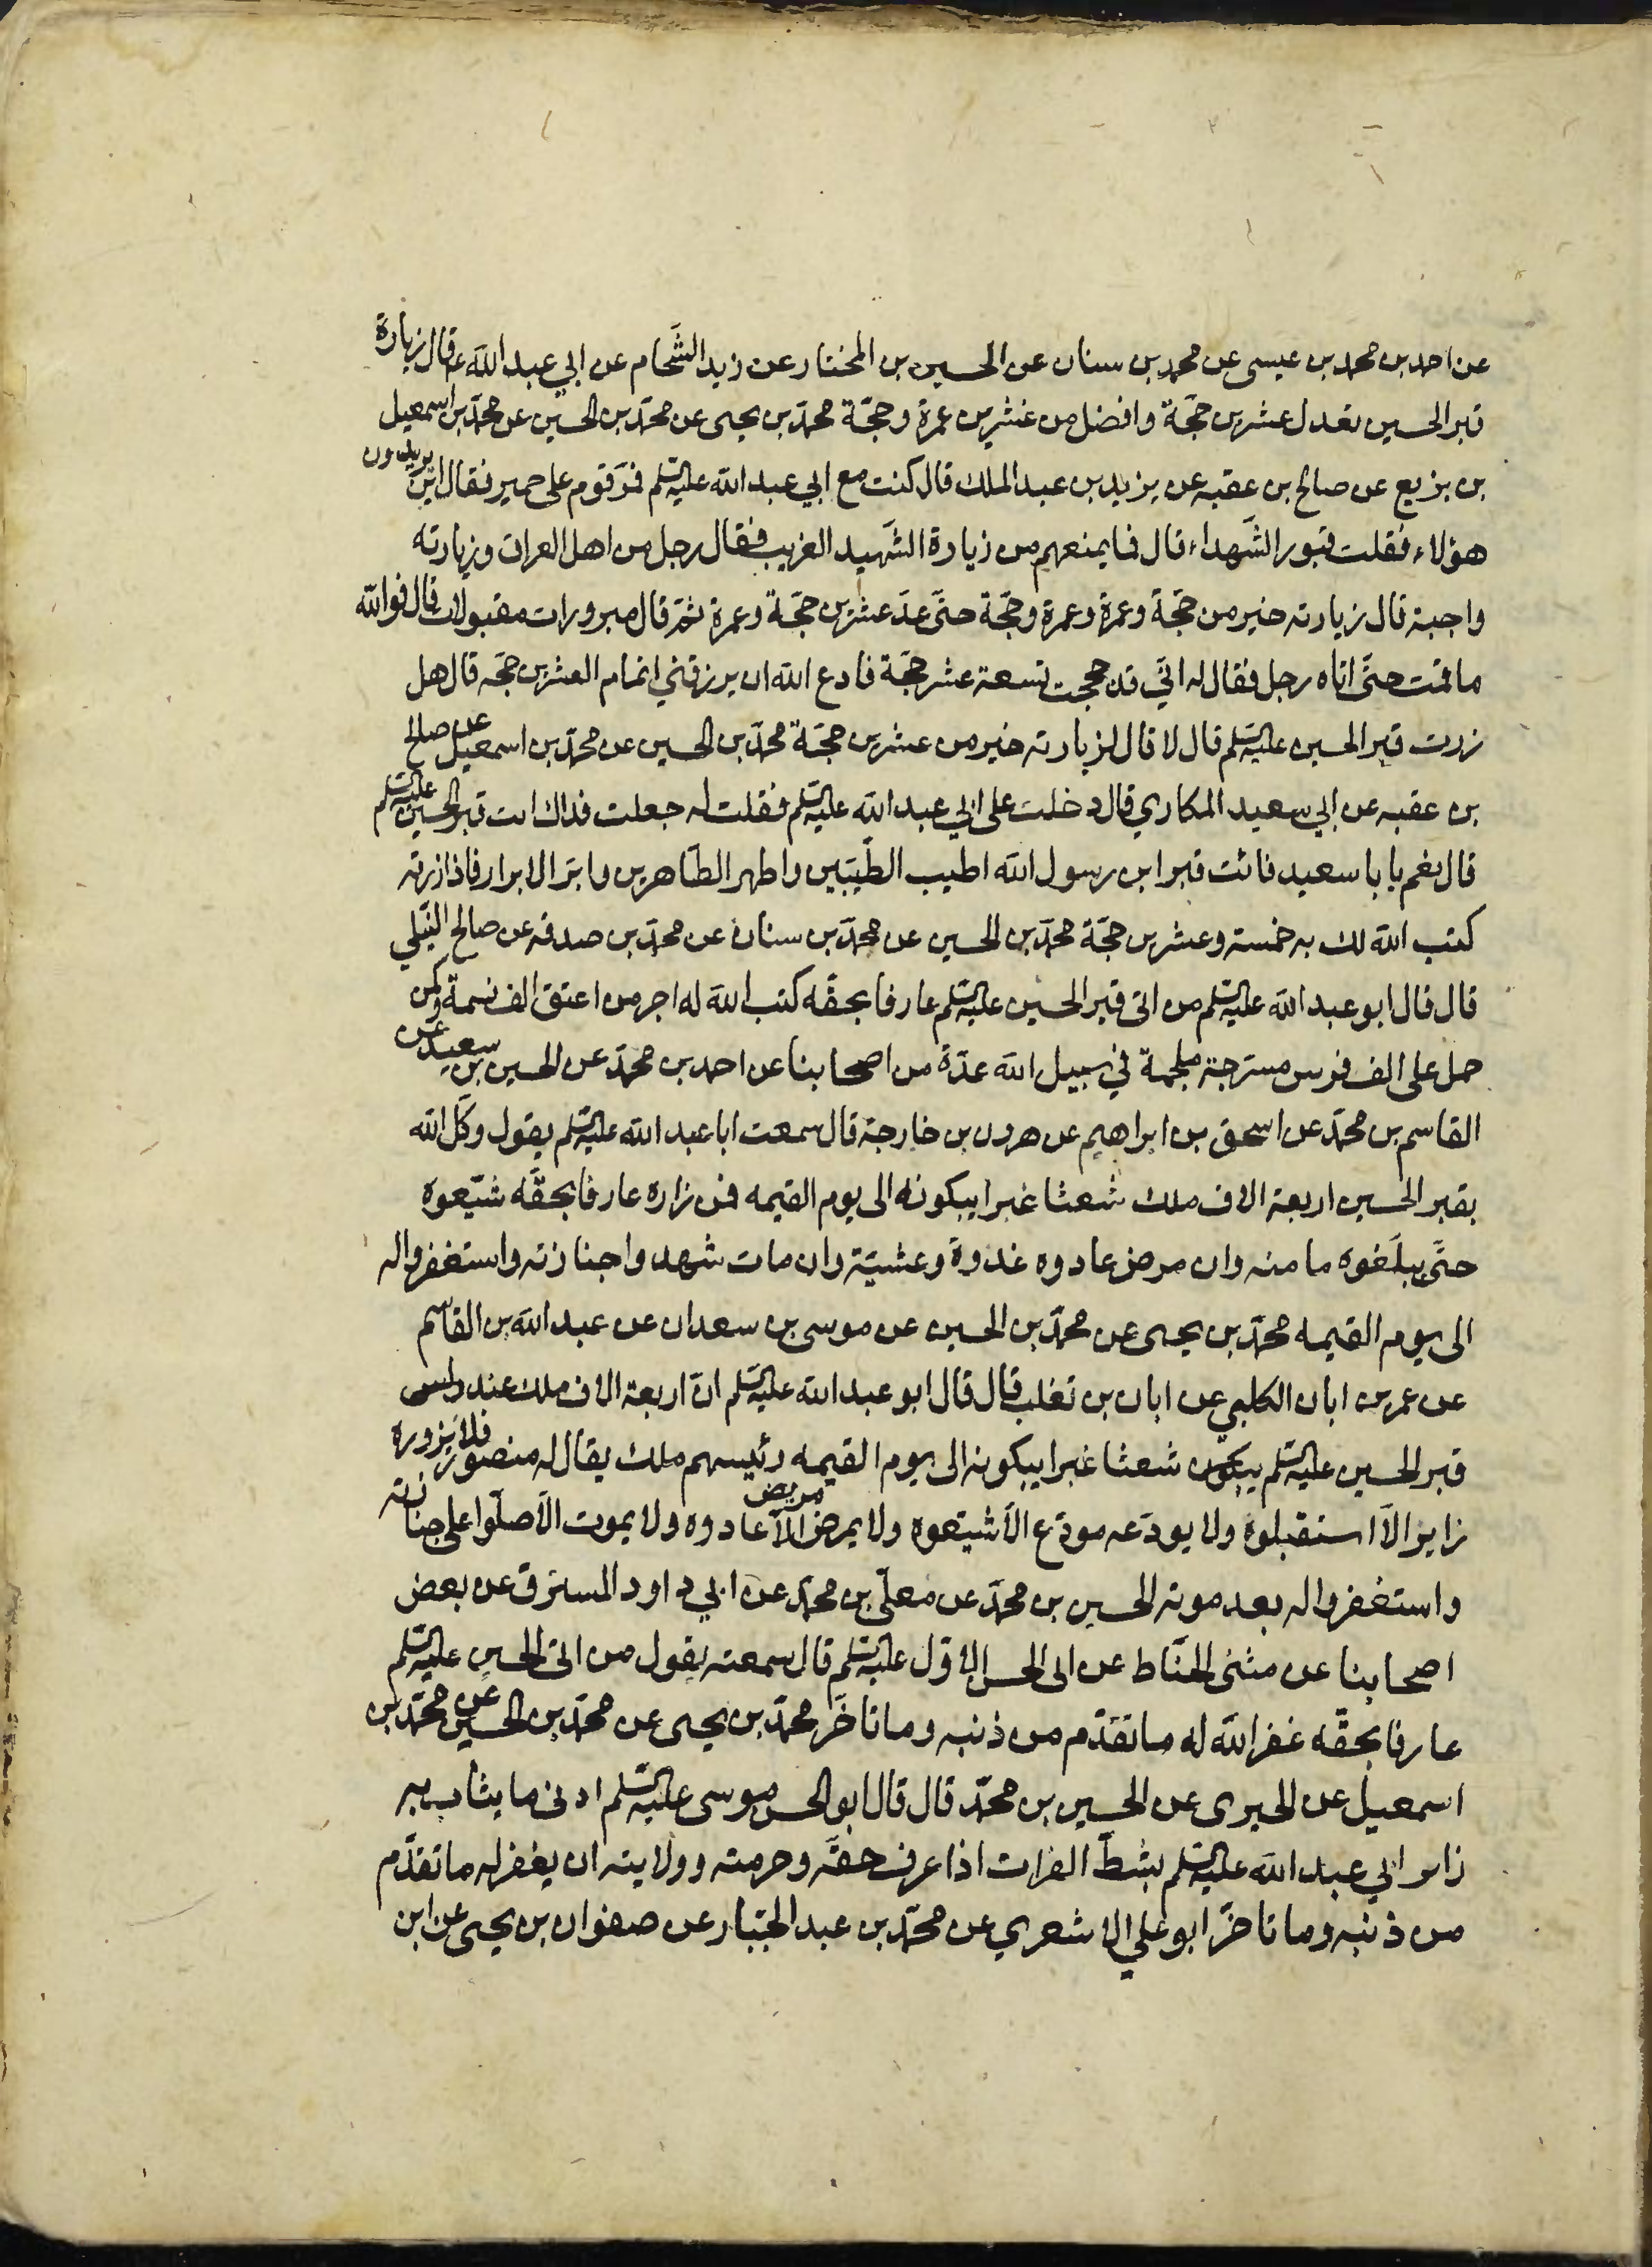 عن احمد بن محمد بن عيسى عن محمد بن سنان عن الحسين بن المختار عن زيد الشحّام عن ابي عبد الله ع قال زيارة
قبر الحسين تعدل عشرين حجّة وافضل من عشرين عمرة وحجّة محمّد بن يحيى عن محمّد بن الحسين عن محمّد بن اسمعيل
بن بزيع عن صالح بن عقبه عن يزيد بن عبد الملك قال كنت مع ابي عبد الله عليه السّلم فمرّ قوم على حمير فقال اين يريدون
هؤلاء فقلت قبور الشّهداء قال فما يمنعهم من زيارة الشّهيد الغريب فقال رجل من اهل العراق وزيارته
واجبة قال زيارته خير من حجّة وعمرة وعمرة وحجّة حتّى عدّ عشرين حجّة وعمرة ثمّ قال مبرورات مقبولات قال فوالله
ما قمت حتّى اتاه رجل فقال له انّي قد حججت تسعة عشر حجّة فادع الله ان يرزقني اتمام العشرين حجّه قال هل
زرت قبر الحسين عليه السّلم قال لا قال لزيارته خير من عشرين حجّة محمّد بن الحسين عن محمّد بن اسمعيل عن صالح
بن عقبه عن ابي سعيد المكاري قال دخلت على ابي عبد الله عليه السّلم فقلت له جعلت فداك ات قبر الحسين عليه السّلم
قال نعم يا با سعيد فائت قبر ابن رسول الله اطيب الطّيّبين واطهر الطّاهرين وابرّ الابرار فاذا زرته
كتب الله لك به خمسة وعشرين حجّة محمّد بن الحسين عن محمّد بن سنان عن محمّد بن صدقه عن صالح النّيلي
قال قال ابو عبد الله عليه السّلم من اتى قبر الحسين عليه السّلم عارفا بحقّه كتب الله له اجر من اعتق الف نسمة وكمن
حمل على الف فرس مسرّجة ملجمة في سبيل الله عدّة من اصحابنا عن احمد بن محمّد عن الحسين بن سعيد عن
القاسم بن محمّد عن اسحق بن ابراهيم عن هرون بن خارجة قال سمعت ابا عبد الله عليه السّلم يقول وكّل الله
بقبر الحسين اربعة الاف ملك شعثا غبرا يبكونه الى يوم القيمه فمن زاره عارفا بحقّه شيّعوه
حتّى يبلّغوه مامنه وان مرض عادوه غدوة وعشيّة وان مات شهدوا جنازته واستغفروا له
الى يوم القيمه محمّد بن يحيى عن محمّد بن الحسين عن موسى بن سعدان عن عبد الله بن القاسم
عن عمر بن ابان الكلبي عن ابان بن تغلب قال قال ابو عبد الله عليه السّلم انّ اربعة الاف ملك عند راس
قبر الحسين عليه السّلم يبكون شعثا غبرا يبكونه الى يوم القيمه رئيسهم ملك يقال له منصور فلا يزوره
زاير الّا استقبلوه ولا يودّعه مودّع الّا شيّعوه ولا يمرض مريض الّا عادوه ولا يموت الّا صلّوا على جنازته
واستغفروا له بعد موته الحسين بن محمّد عن معلّى بن محمّد عن ابي داود المسترق عن بعض
اصحابنا عن مثنى الحنّاط عن ابى الحسن الاوّل عليه السّلم قال سمعته يقول من اتى الحسين عليه السّلم
عارفا بحقّه غفر الله له ما تقدّم من ذنبه وما تاخّر محمّد بن يحيى عن محمّد بن الحسين عن محمّد بن
اسمعيل عن الخيبرى عن الحسين بن محمّد قال قال ابو الحسن موسى عليه السّلم ادنى ما يثاب به
زاير ابي عبد الله عليه السّلم بشطّ الفرات اذا عرف حقّه وحرمته وولايته ان يغفر له ما تقدّم
من ذنبه وما تاخّر ابو علي الاشعري عن محمّد بن عبد الجبّار عن صفوان بن يحيى عن ابن